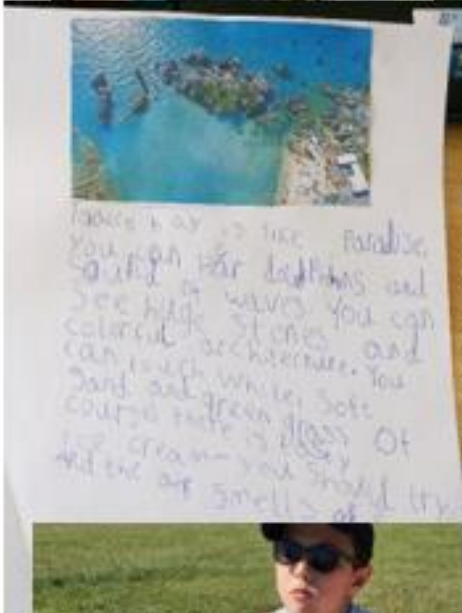 is like Paradise.
You can hear dolphins and
sound of waves. You can
see huge stones and
colorful architecture. You
can touch white, soft
sand and green grass. Of
course there is
ice cream you should try.
And the air smells of